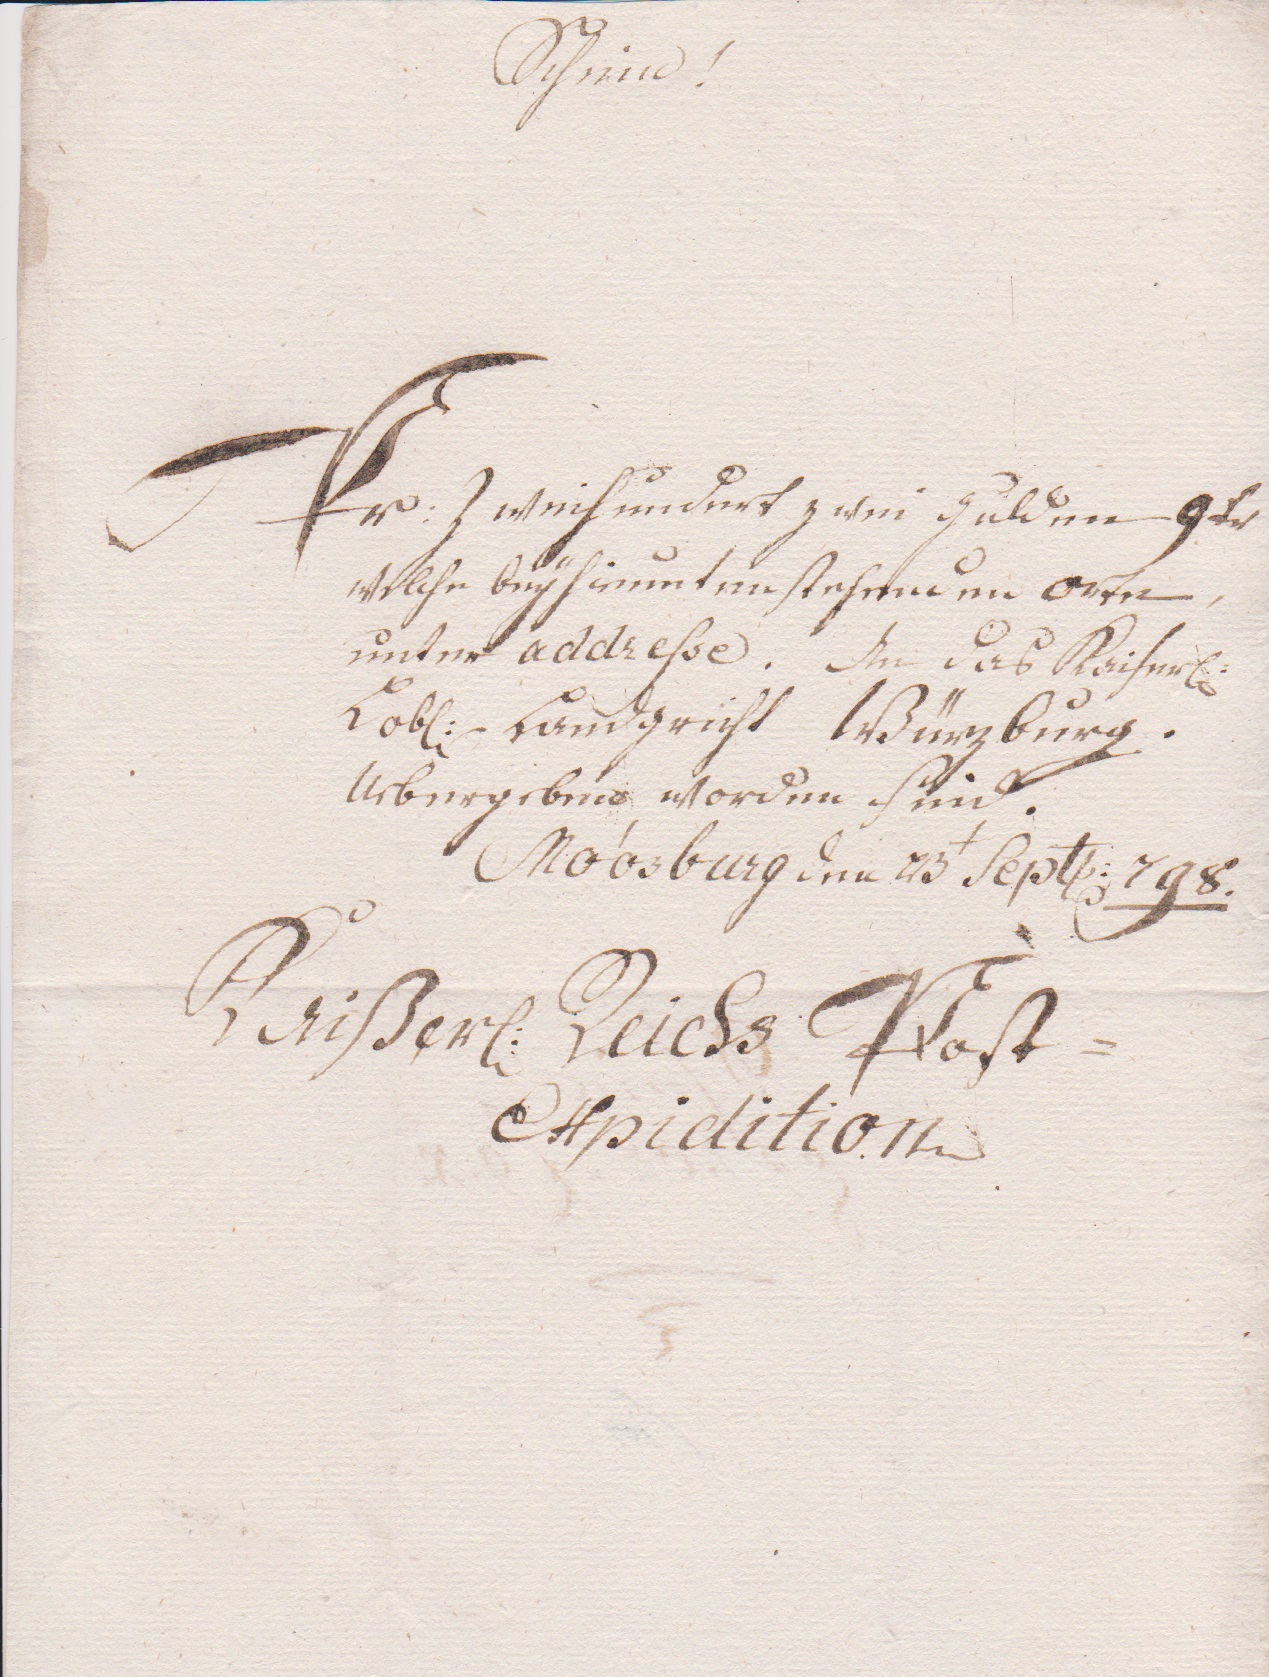 Schein!
Pr: Zweihundert zwei Gulden 9 kr
welche beÿ hieruntenstehenden orte,
unter addresse. An das Kaiserl:
Löbl: Landgricht Würzburg.
Uebergeben worden sind.
Moosburg den 23t Septb: 798.
Kaißerl: Reichs Post=
Expidition